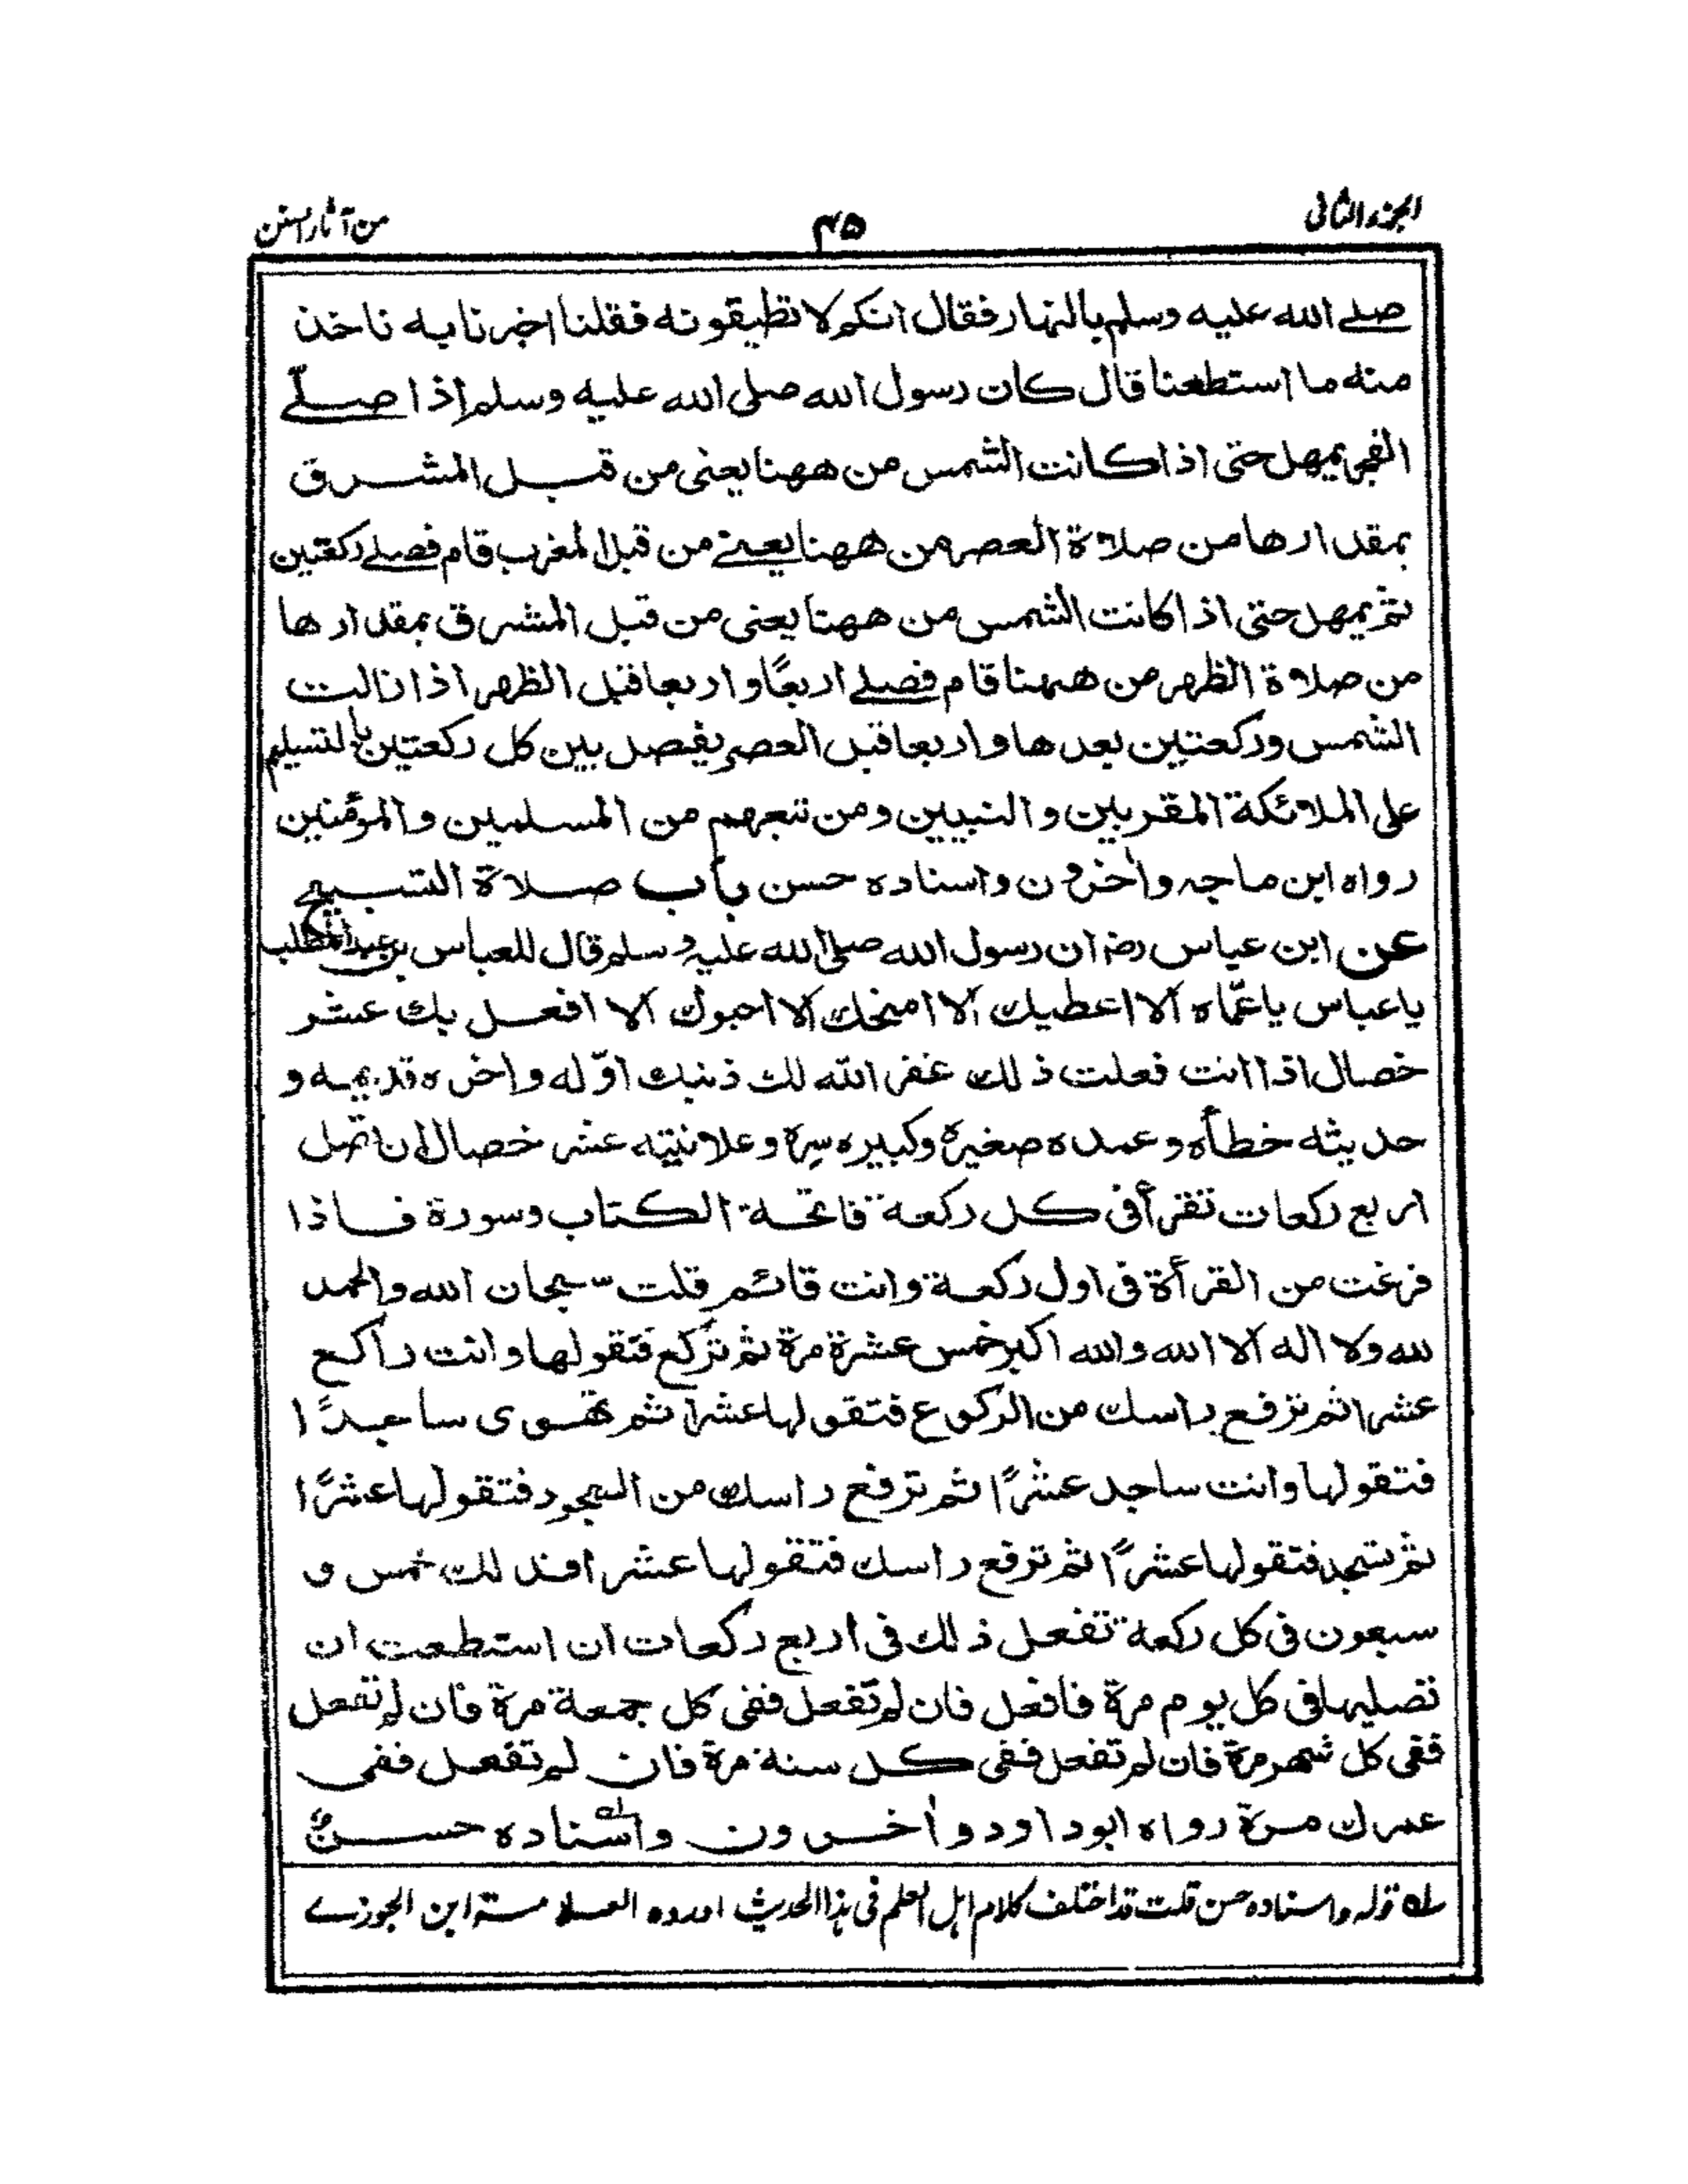 الجزء الثانی
۴۵
من آثار السنن
صلے الله علیه وسلم بالنهار فقال انکم لا تطیقونه فقلنا اخبرنا به ناخذ
منه ما استطعنا قال کان رسول الله صلی الله علیه وسلم اذا صلّے
الفجر یمهل حتی اذا کانت الشمس من ههنا یعنی من قبل المشرق
بمقدارها من صلاة العصر من ههنا یعنے من قبل المغرب قام فصلے رکعتین
ثم یمهل حتی اذا کانت الشمس من ههنا یعنی من قبل المشرق بمقدارها
من صلاة الظهر من ههنا قام فصلے اربعًا واربعا قبل الظهر اذا زالت
الشمس ورکعتین بعدها واربعا قبل العصر یفصل بین کل رکعتین بالتسلیم
علی الملائکة المقربین والنبیین ومن تبعهم من المسلمین والمؤمنین
رواه ابن ماجه واٰخرون واسناده حسن باب صلاة التسبیح
عن ابن عباس رضـ ان رسول الله صلی الله علیه وسلم قال للعباس بن عبدالمطلب
یاعباس یاعمّاه الا اعطیك الا امنحك الا احبوك الا افعل بك عشر
خصال اذا انت فعلت ذلك غفر الله لك ذنبك اوّله واخره قدیمه و
حدیثه خطأه وعمده صغیره وکبیره سره وعلانیته عشر خصال ان تصل
اربع رکعات تقرأ فی کل رکعة فاتحة الکتاب وسورة فاذا
فرغت من القرأة فی اول رکعة وانت قائم قلت سبحان الله والحمد
لله ولا اله الا الله والله اکبر خمس عشرة مرة ثم ترکع فتقولها وانت راکع
عشرا ثم ترفع راسك من الرکوع فتقولها عشرا ثم تهوی ساجدًا
فتقولها وانت ساجد عشرًا ثم ترفع راسك من السجود فتقولها عشرًا
ثم تسجد فتقولها عشرًا ثم ترفع راسك فتقولها عشرا فذلك خمس و
سبعون فی کل رکعة تفعل ذلك فی اربع رکعات ان استطعت ان
تصلیها فی کل یوم مرة فافعل فان لم تفعل ففی کل جمعة مرة فان لم تفعل
ففی کل شهر مرة فان لم تفعل ففی کل سنة مرة فان لم تفعل ففی
عمرك مرة رواه ابوداود واٰخرون واسناده حسن
له قوله واسناده حسن قلت قد اختلف کلام اہل العلم فی ہذا الحدیث اورده العلامة ابن الجوزے